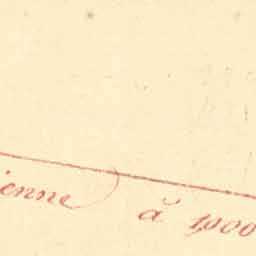 ienne à 1000